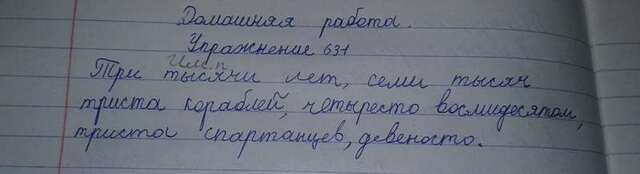 Домашняя работа.
Упражнение 631
Им.п.
Три тысячи лет, семи тысяч
триста кораблей, четыресто восмидесятом,
триста спартанцев, девеносто.